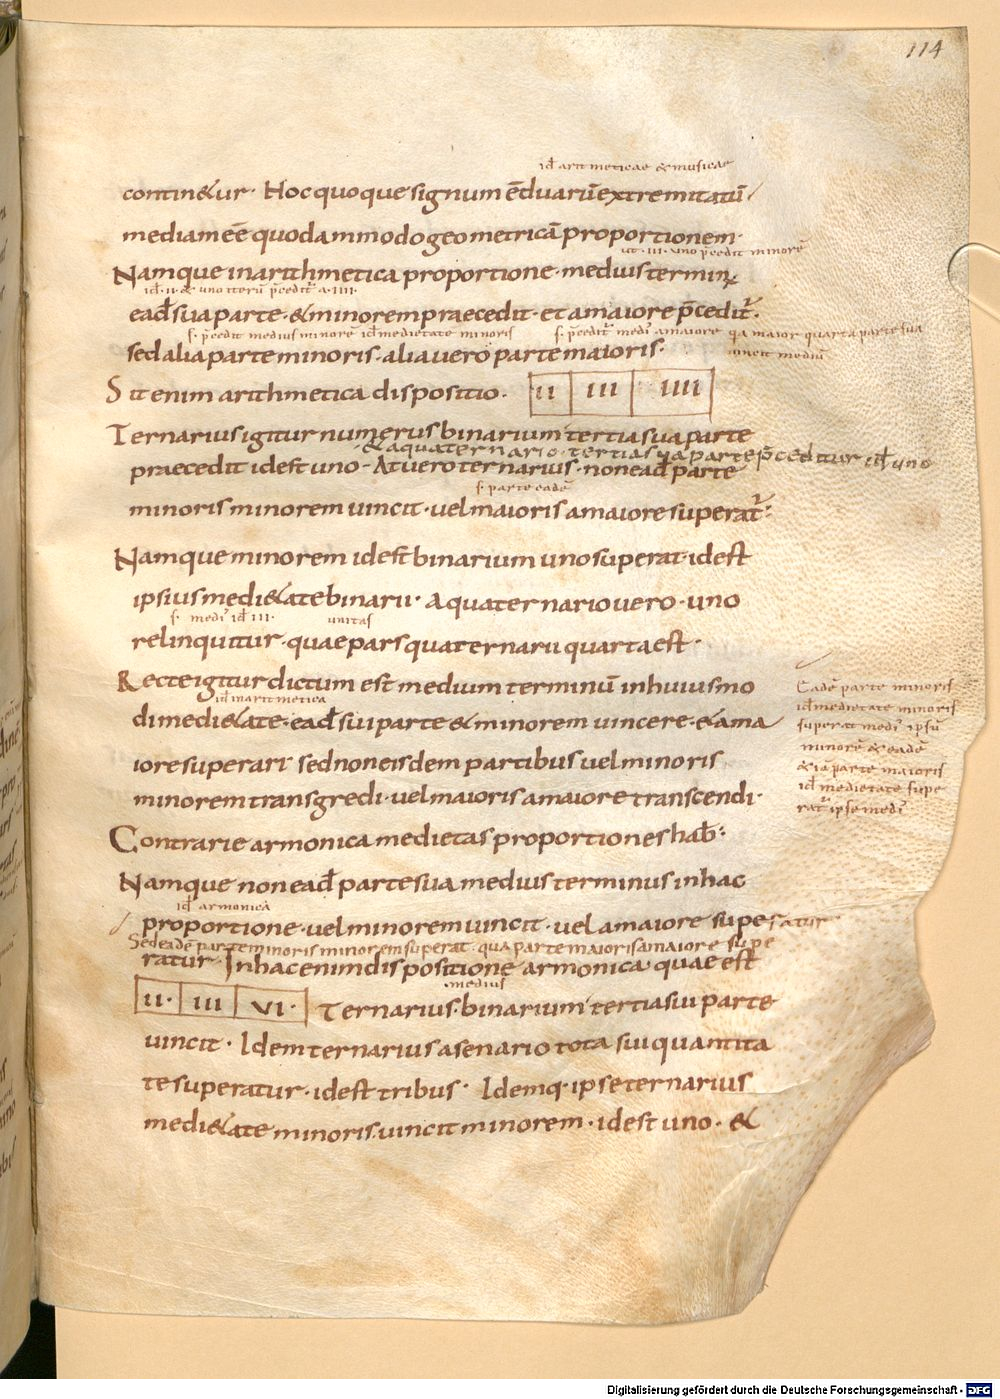 114
id arithmeticae & musicae
contin&ur · Hoc quoque signum ē duarū extremitatū
mediam eē quodammodo geometricā proportionem·
ut · III · uno p̄cedit minorē
Namque in arithmetica proportione · medius termin;
id · II · & uno iterū p̄cedit̄ a · IIII ·
ead sua parte · & minorem praecedit · et a maiore p̄cedit̄·
s· p̄cedit medius minorē id medietate minoris s· p̄cedit̄ medī a maiore qia maior quarta parte sua
sed alia parte minoris · alia uero parte maioris·
uincit mediū
Sit enim arithmetica dispositio · II III IIII
Ternarius igitur numerus binarium tertia sua parte
& a quaternario · tertia sua parte p̄ceditur id uno
praecedit id est uno – At uero ternarius · non ead parte
s· parte eadē
minoris minorem uincit · uel maioris a maiore superat̄:
Namque minorem id est binarium uno superat · id est
ipsius medi&ate binarii · A quaternario uero · uno
s· medī id III · unitas
relinquitur · quae pars quaternarii quarta est ·
Recte igitur dictum est medium terminū in huiusmo
id in aritmetica
di medi&ate · ead sui parte & minorem uincere · & a ma
iore superari sed non eisdem partibus uel minoris
minorem transgredi · uel maioris a maiore transcendi·
Eadē parte minoris
id medietate minoris
superat medī ipsū
minorē & eadē
& ia parte maioris
id medietate supe
rat̄ ipse medī
Contrarie armonica medietas proportiones hab:
Namque non ead parte sua medius terminus in hac
id armonica
proportione · uel minorem uincit · uel a maiore superatur
Sed eidē parte minoris minorem superat · qua parte maioris a maiore supe
ratur · In hac enim dispositione armonica quae est
medius
II · III VI · Ternarius · binarium tertia sui parte
uincit · Idem ternarius a senario tota sui quantita
te superatur · id est tribus · Idemq· ipse ternarius
medi&ate minoris · uincit minorem · id est uno · &
Digitalisierung gefördert durch die Deutsche Forschungsgemeinschaft - DFG